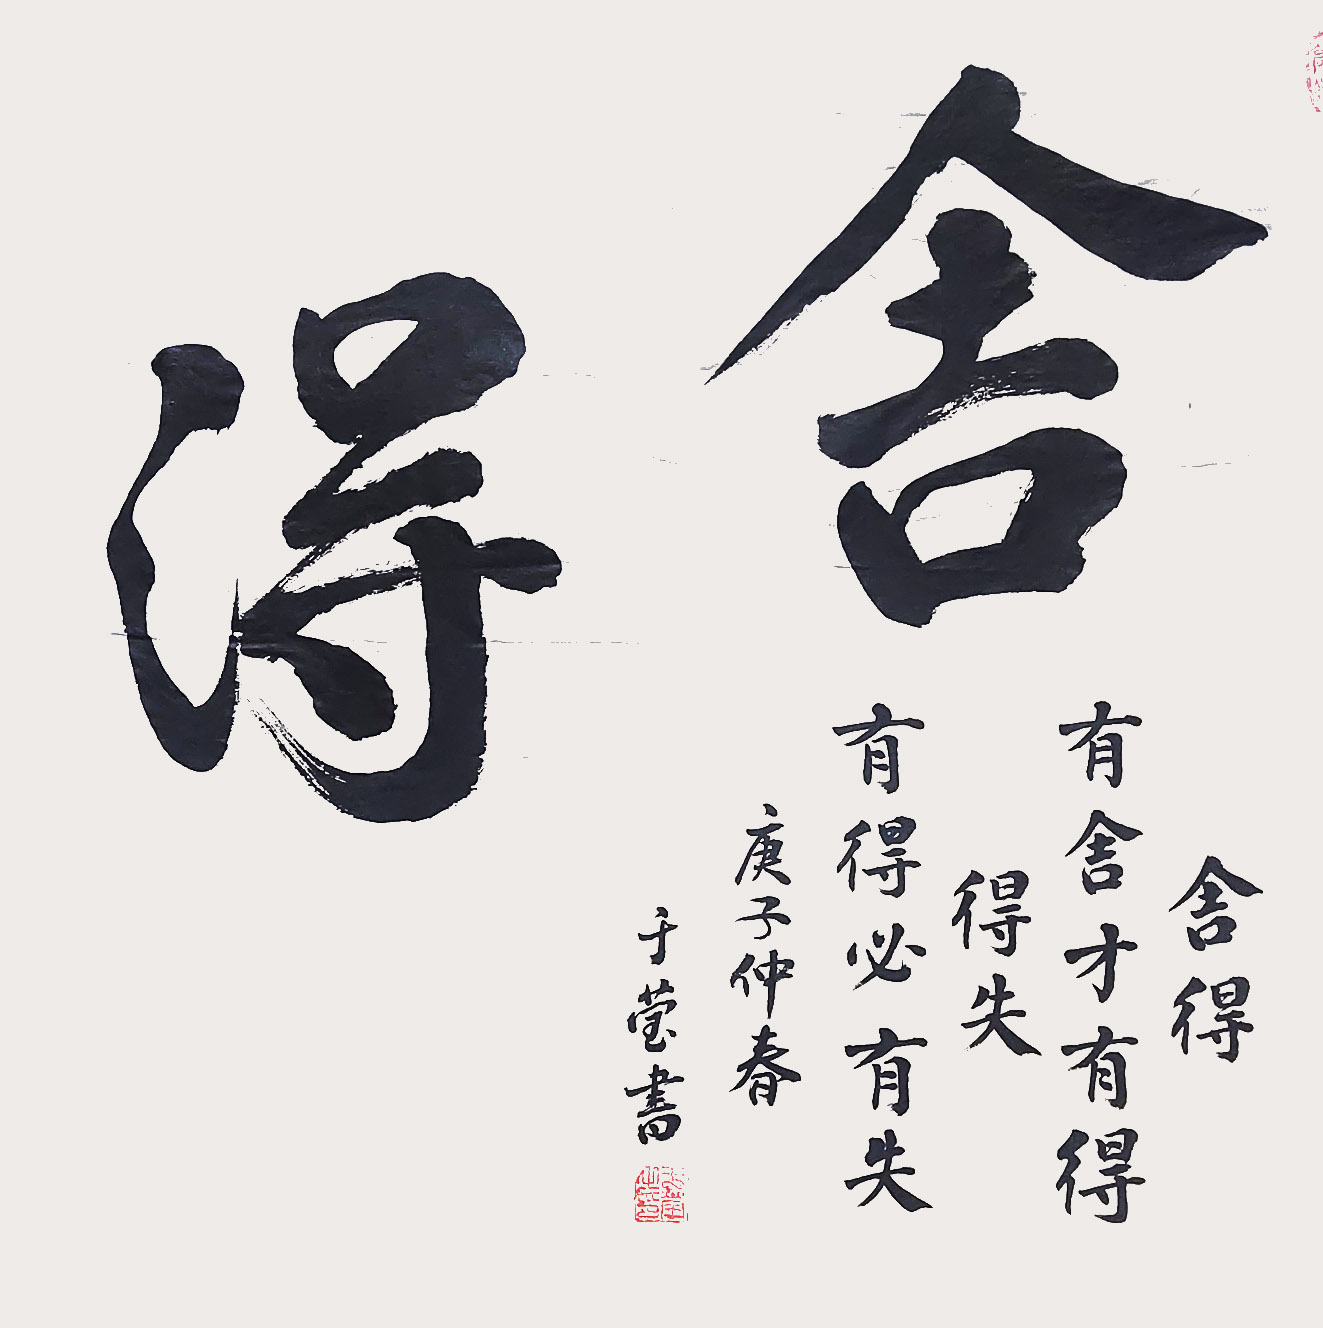 舍得
舍得
有舍才有得
得失
有得必有失
庚子仲春
于莹書